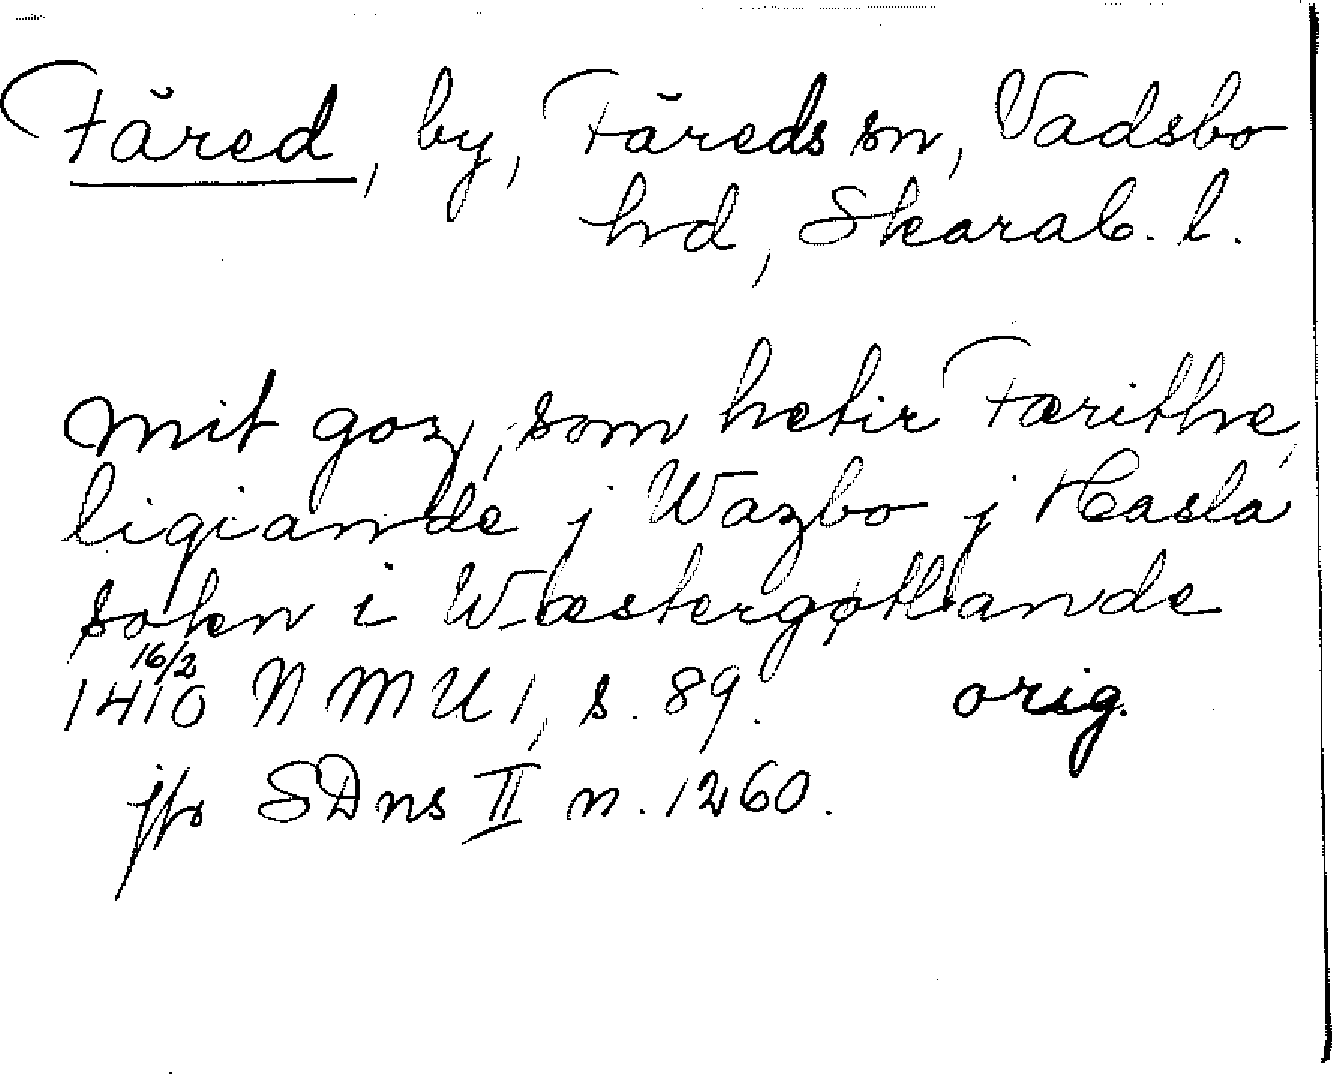 Fåred, by, Fåreds sn, Vadsbo
hd, Skarab. l.
mit goz, som hetir Færithe,
ligiande j Wazbo j Hasla
sokn i Wæstergøtlande
16/2
1410 NMU 1, s. 89. orig.
jfr SDns II n. 1260.